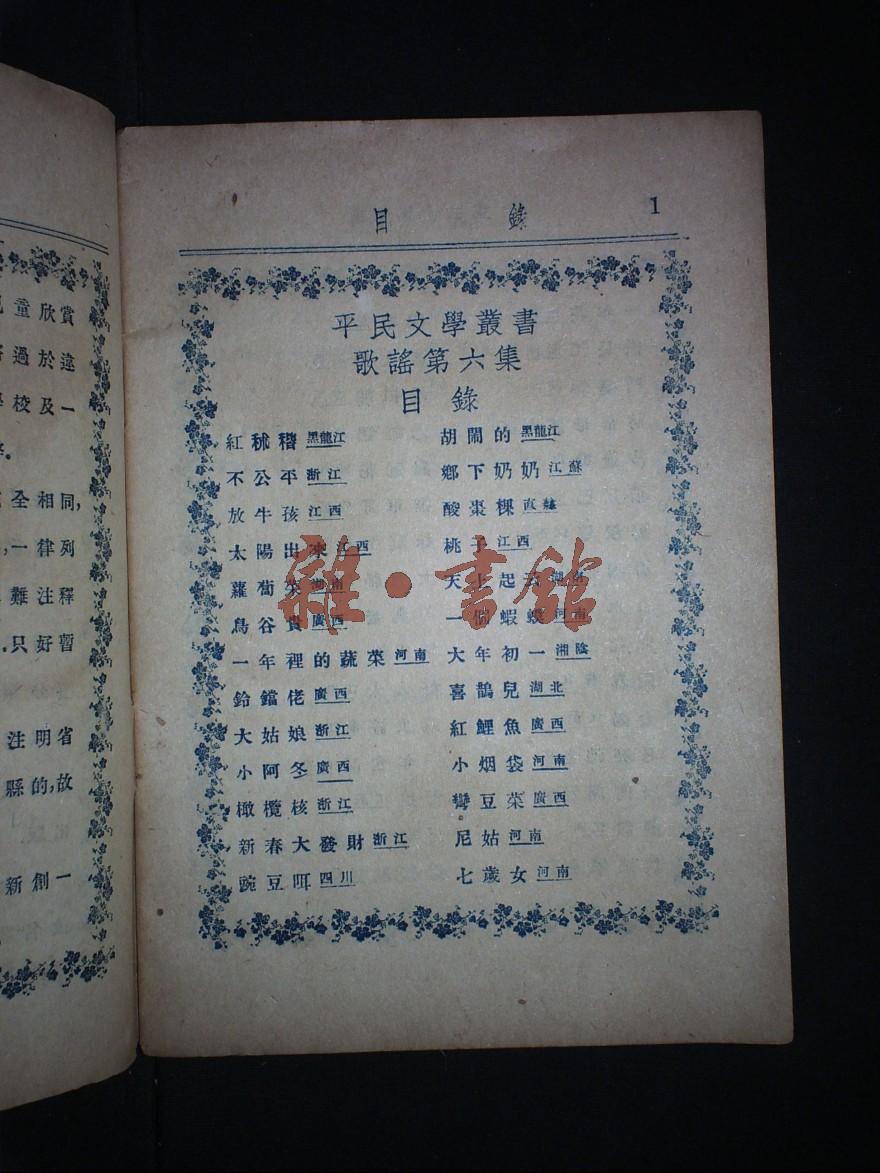 目錄 1
平民文學叢書
歌謠第六集
目錄
紅秫稭 黑龍江 胡鬧的 黑龍江
不公平 浙江 鄉下奶奶 江蘇
放牛孩 江西 酸棗棵 直隸
太陽出來 江西 桃子 江西
蘿蔔菜 湖南 天上起
鳥谷貴 廣西 一個蝦蟆 河南
一年裡的蔬菜 河南 大年初一 湘陰
鈴鐺佬 廣西 喜鵲兒 湖北
大姑娘 浙江 紅鯉魚 廣西
小阿冬 廣西 小烟袋 河南
橄欖核 浙江 彎豆菜 廣西
新春大發財 浙江 尼姑 河南
豌豆咡 四川 七歲女 河南
雜·書館
童欣賞
過於遠
校及一
全相同,
一律列
難注釋
只好暫
注明省
縣的,故
新創一